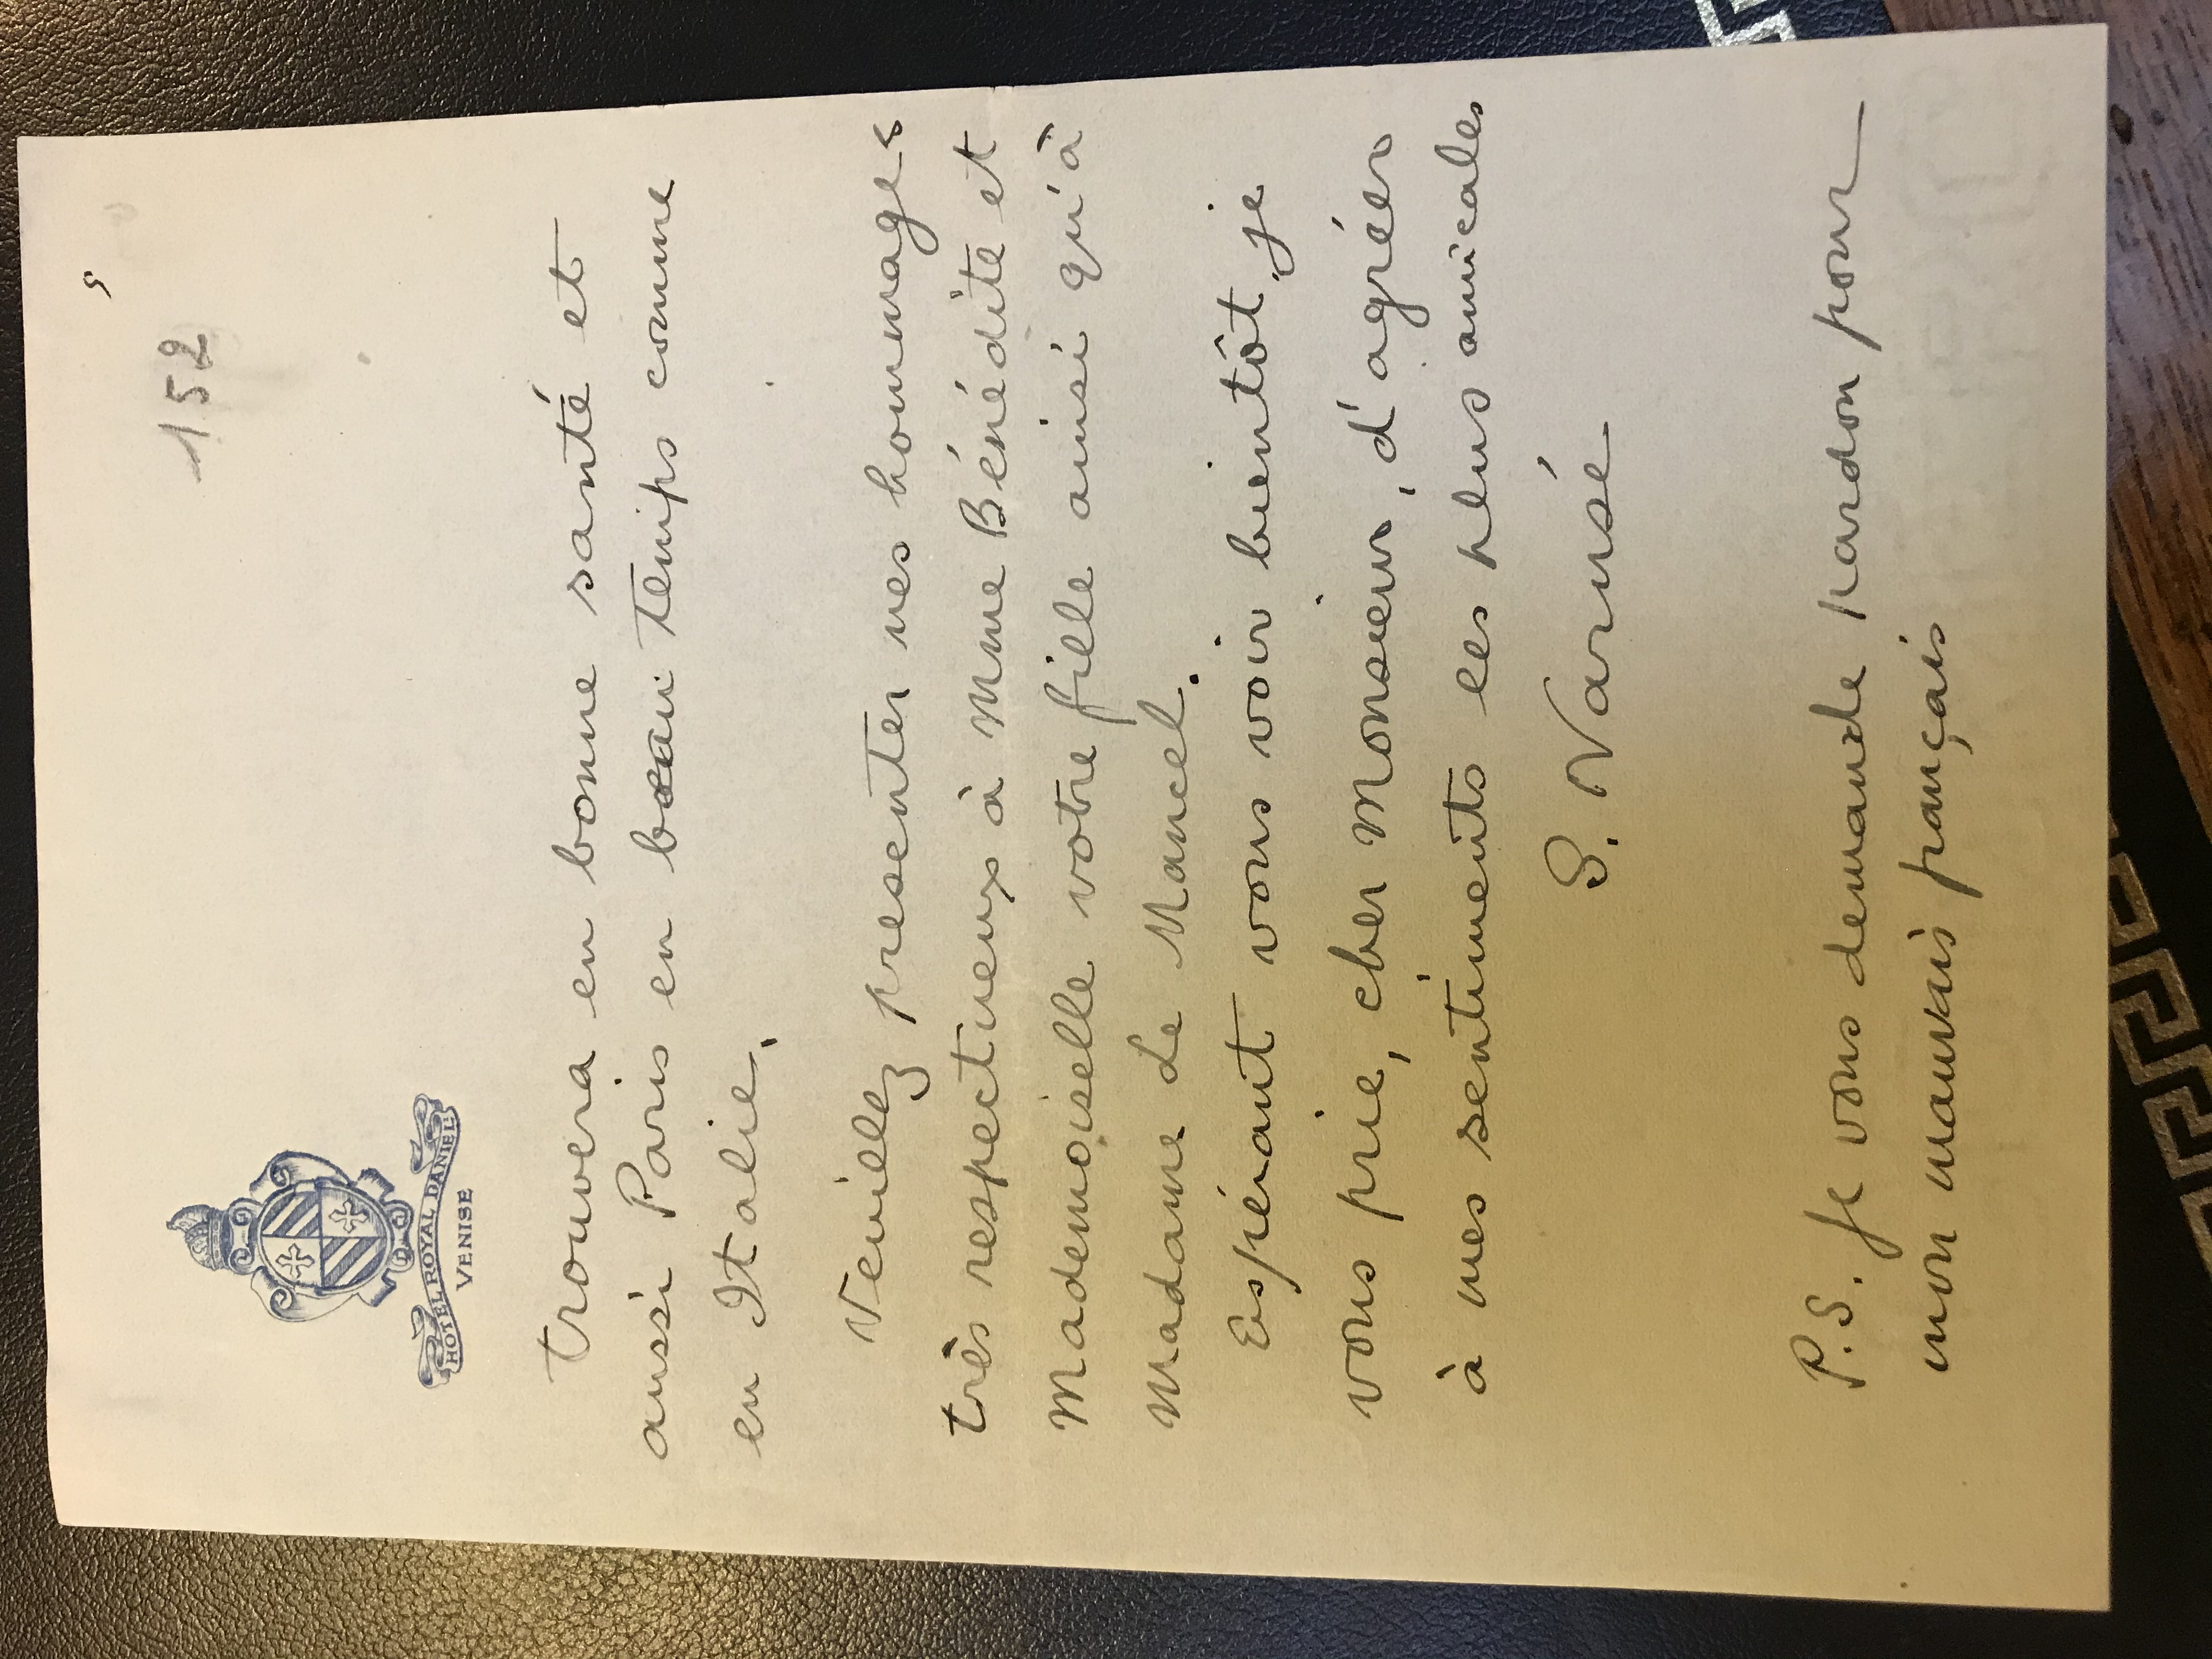 5
152
HOTEL ROYAL DANIELI
VENISE
trouvera en bonne santé et
aussi Paris en beau temps comme
en Italie.
Veuillez presenter mes hommages
très respectueux à Mme Bénédite et
Mademoiselle votre fille ainsi qu'à
Madame Le Mancel.
Espérant vous voir bientôt, je
vous prie, cher Monsieur, d'agréer
à mes sentiments les plus amicales
S. Narusé
P.S. Je vous demande pardon pour
mon mauvais français